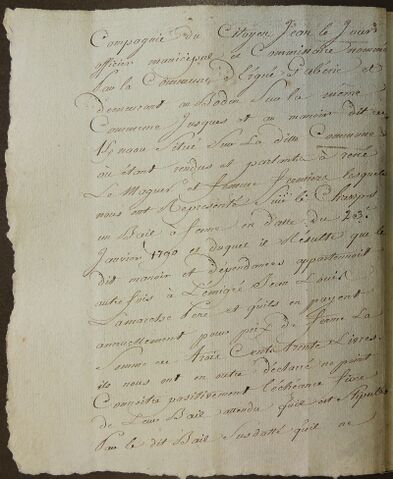 Compagnie du Citoyen Jean le Jour
officier municipal et Commissaire nommé
Par la Commune d'Ergué Gaberic et
demeurant au Bodin Sur la même
Commune Jusques et au manoir dit
Situé Sur La ditte Commune
ou étant rendus et parlant à rené
Le Magur et femme fermiers lesquels
nous ont Représenté Sur le Champ
un Bail à ferme en datte du 23.
Janvier 1790 et duquel il Résulte que le
dit manoir et dépendances appartenoit
autre fois à L'émigré Jean Louis
Lamarche Père et qu'ils en payent
annuellement pour prix de ferme La
Somme de Trois Cents trente Livres
ils nous ont en outre déclaré ne point
Connoitre positivement l'échéance fixe
de Leur Bail attendu qu'il est Stipulé
Par le dit Bail Susdatté qu'il ne